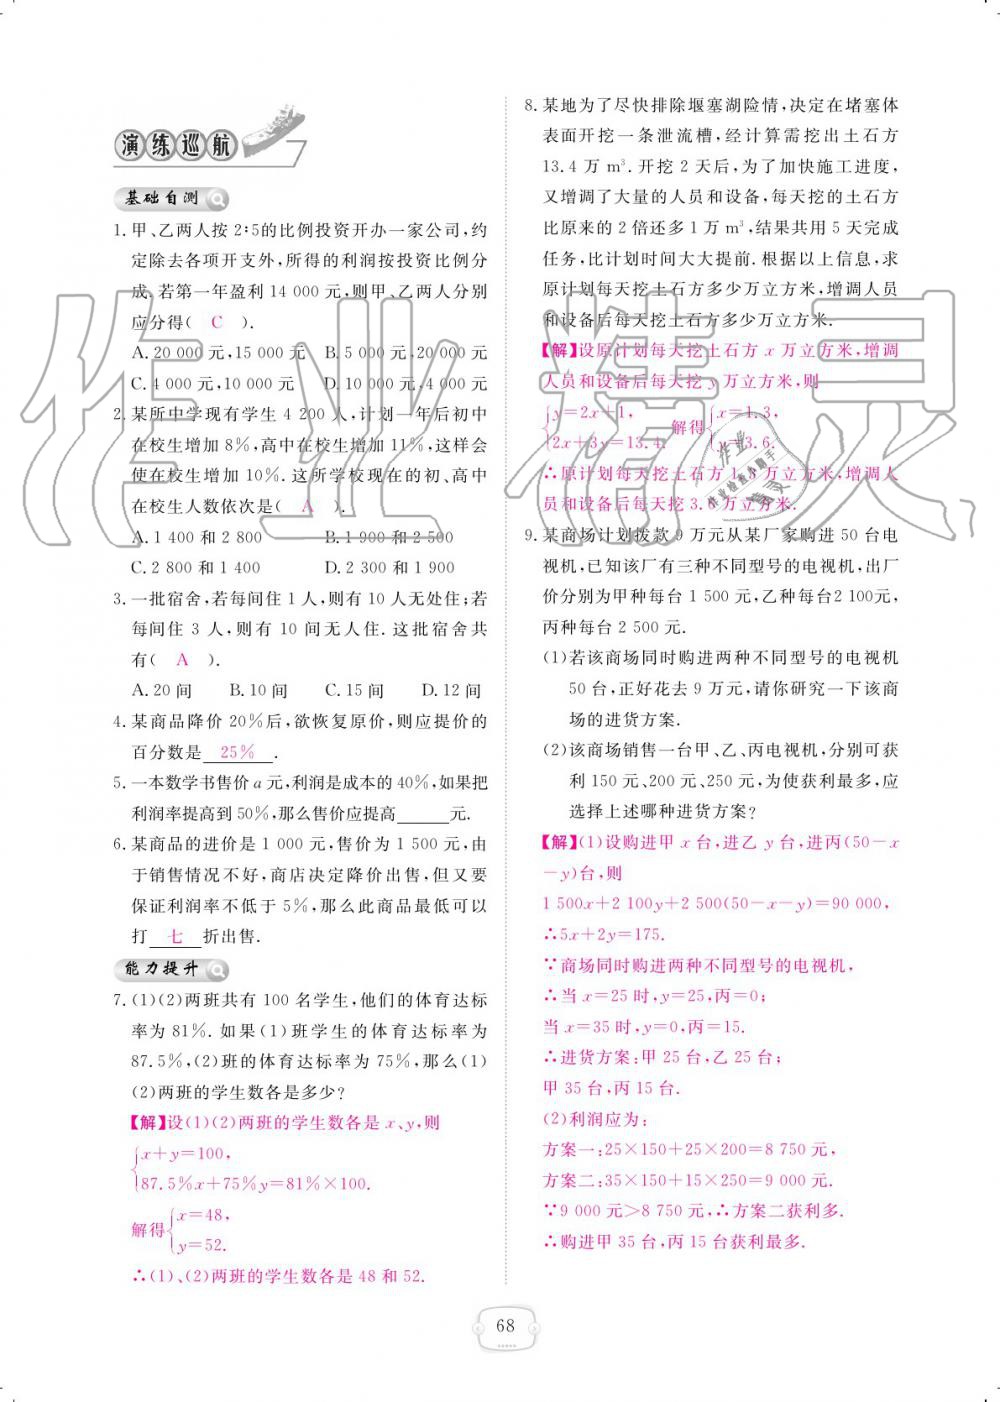 演练巡航
基础自测
1. 甲、乙两人按 2∶5的比例投资开办一家公司,约
定除去各项开支外,所得的利润按投资比例分
成.若第一年盈利 14 000 元,则甲、乙两人分别
应分得( C ).
A. 20 000 元,15 000 元 B. 5 000 元,20 000 元
C. 4 000 元,10 000 元 D. 10 000 元,4 000 元
2. 某所中学现有学生 4 200 人,计划一年后初中
在校生增加 8%,高中在校生增加 11%,这样会
使在校生增加 10%.这所学校现在的初、高中
在校生人数依次是( A ).
A. 1 400 和 2 800 B. 1 900 和 2 500
C. 2 800 和 1 400 D. 2 300 和 1 900
3. 一批宿舍,若每间住 1 人,则有 10 人无处住;若
每间住 3 人,则有 10 间无人住.这批宿舍共
有( A ).
A. 20 间 B. 10 间 C. 15 间 D. 12 间
4. 某商品降价 20%后,欲恢复原价,则应提价的
百分数是 25% .
5. 一本数学书售价 a 元,利润是成本的 40%,如果把
利润率提高到 50%,那么售价应提高______元.
6. 某商品的进价是 1 000 元,售价为 1 500 元,由
于销售情况不好,商店决定降价出售,但又要
保证利润率不低于 5%,那么此商品最低可以
打 七 折出售.
能力提升
7. (1)(2)两班共有 100 名学生,他们的体育达标
率为 81%.如果(1)班学生的体育达标率为
87.5%,(2)班的体育达标率为 75%,那么(1)
(2)两班的学生数各是多少?
【解】设(1)(2)两班的学生数各是 x、y,则
x+y=100,
87.5%x+75%y=81%×100.
解得
x=48,
y=52.
∴(1)、(2)两班的学生数各是 48 和 52.
8. 某地为了尽快排除堰塞湖险情,决定在堵塞体
表面开挖一条泄流槽,经计算需挖出土石方
13.4 万 m³.开挖 2 天后,为了加快施工进度,
又增调了大量的人员和设备,每天挖的土石方
比原来的 2 倍还多 1 万 m³,结果共用 5 天完成
任务,比计划时间大大提前.根据以上信息,求
原计划每天挖土石方多少万立方米,增调人员
和设备后每天挖土石方多少万立方米.
【解】设原计划每天挖土石方 x 万立方米,增调
人员和设备后每天挖 y 万立方米,则
y=2x+1,
2x+3y=13.4.
解得
x=1.3,
y=3.6.
∴原计划每天挖土石方 1.3 万立方米,增调人
员和设备后每天挖 3.6 万立方米.
9. 某商场计划拨款 9 万元从某厂家购进 50 台电
视机,已知该厂有三种不同型号的电视机,出厂
价分别为甲种每台 1 500 元,乙种每台2 100元,
丙种每台 2 500 元.
(1)若该商场同时购进两种不同型号的电视机
50 台,正好花去 9 万元,请你研究一下该商
场的进货方案.
(2)该商场销售一台甲、乙、丙电视机,分别可获
利 150 元、200 元、250 元,为使获利最多,应
选择上述哪种进货方案?
【解】(1)设购进甲 x 台,进乙 y 台,进丙(50-x
-y)台,则
1 500x+2 100y+2 500(50-x-y)=90 000,
∴5x+2y=175.
∵商场同时购进两种不同型号的电视机,
∴当 x=25 时,y=25,丙=0;
当 x=35 时,y=0,丙=15.
∴进货方案:甲 25 台,乙 25 台;
甲 35 台,丙 15 台.
(2)利润应为:
方案一:25×150+25×200=8 750 元,
方案二:35×150+15×250=9 000 元.
∵9 000 元>8 750 元,∴方案二获利多.
∴购进甲 35 台,丙 15 台获利最多.
68
作业精灵